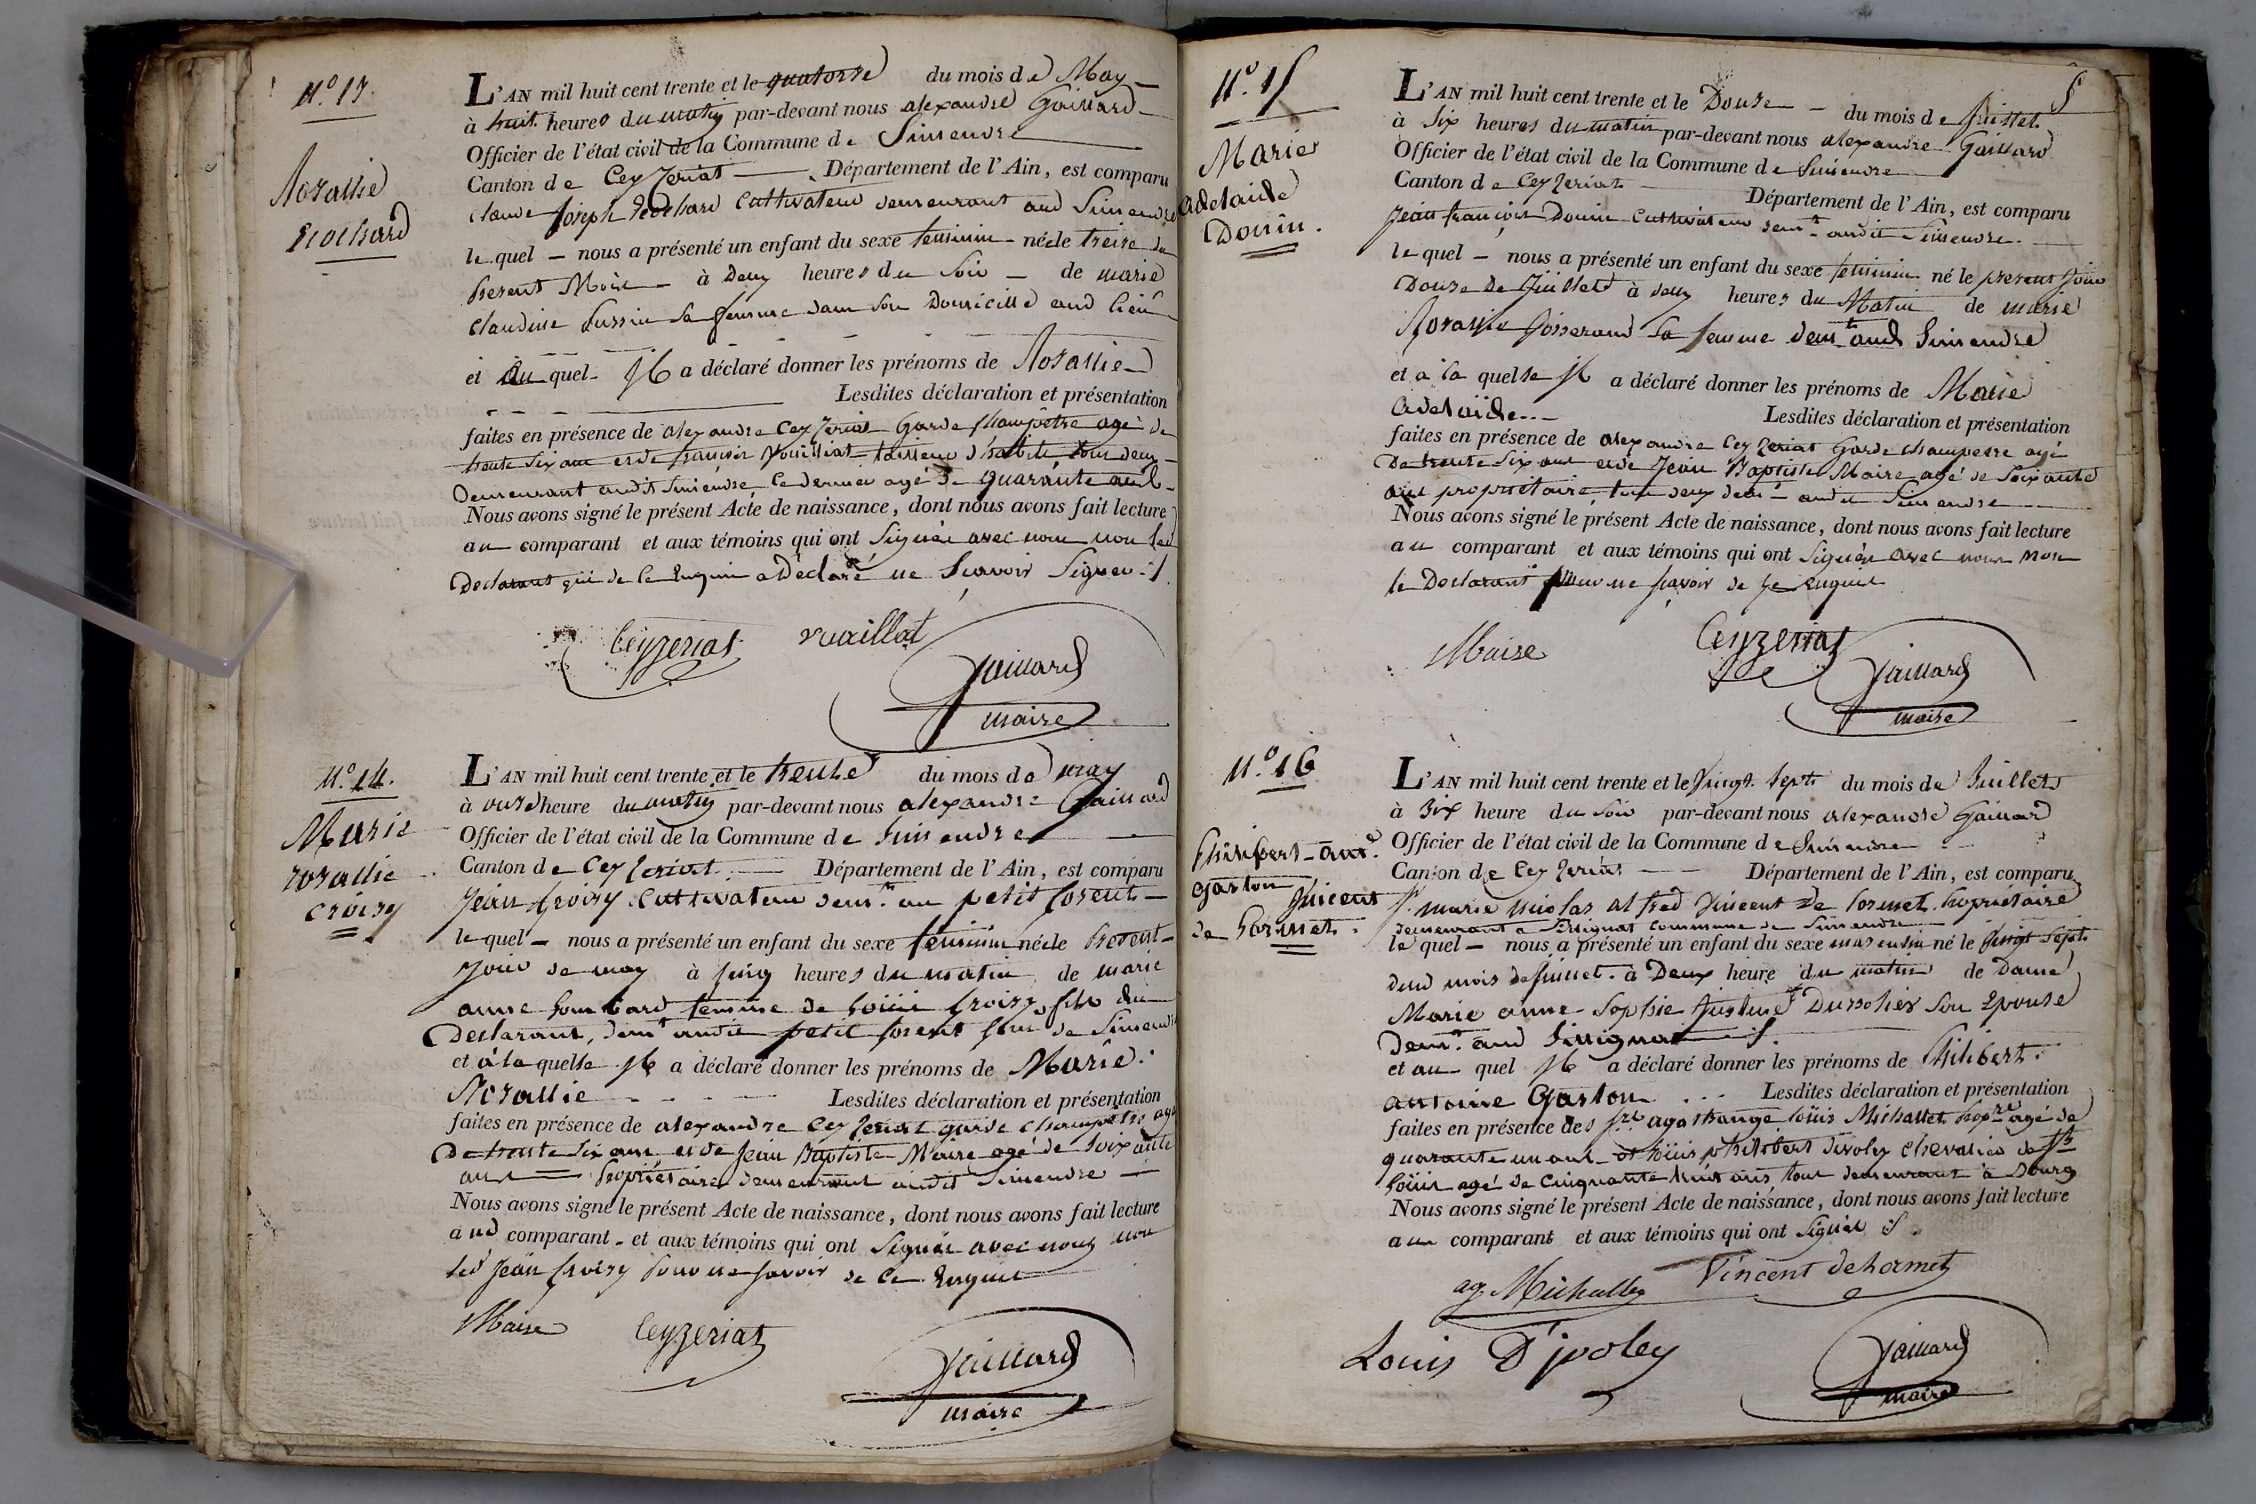 N.º 13.
Rosallie
Brochard
L'AN mil huit cent trente et le quatorze du mois de May
à huit heures du matin par-devant nous alexandre Gaillard
Officier de l'état civil de la Commune de Simandre
Canton de Ceyzeriat Département de l'Ain, est comparu
claude Joseph Brochard Cultivateur demeurant aud Simandre
le quel nous a présenté un enfant du sexe feminin née le treize du
Present Mois à deux heures du Soir de marie
claudine sa femme dans son Domicille aud lieu
et au quel Il a déclaré donner les prénoms de Rosallie
Lesdites déclaration et présentation
faites en présence de alexandre Ceyzeriat Garde champêtre agé de
trente six ans et de françois Vouilliat tailleur d'habits tous deux
demeurant audit Simandre, le dernier agé de quarante ans
Nous avons signé le présent Acte de naissance, dont nous avons fait lecture
au comparant et aux témoins qui ont Signés avec nous non le
Declarant qui de ce Enquis a Déclaré ne Scavoir Signer ./.
Ceyzeriat vuaillat
Gaillard
maire
N.º 14.
Marie
rosallie
croizy
L'AN mil huit cent trente et le trente du mois de may
à onze heure du matin par-devant nous alexandre Gaillard
Officier de l'état civil de la Commune de Simandre
Canton de Ceyzeriat Département de l'Ain, est comparu
Jean Croizy Cultivateur demt. au petit Corent
le quel nous a présenté un enfant du sexe féminin née le Present
Jour de may à cinq heures du matin de marie
anne femme de Loüis Croizy fils du
Declarant, demt audit petit Corent Cne de Simandre
et à la quelle Il a déclaré donner les prénoms de Marie
Rosallie Lesdites déclaration et présentation
faites en présence de alexandre Ceyzeriat garde champetre agé
De trente Six ans et de Jean Baptiste Maire agé de soixante
ans Propriétaire demeurant audit Simandre
Nous avons signé le présent Acte de naissance, dont nous avons fait lecture
aud comparant et aux témoins qui ont Signés avec nous non
led Jean Croizy Pour ne savoir de ce Enquis
Maire Ceyzeriat
Gaillard
maire
N.º 15
Marie
adelaide
Douin.
L'AN mil huit cent trente et le Douze du mois de Juillet
à Six heures du matin par-devant nous alexandre Gaillard
Officier de l'état civil de la Commune de Simandre
Canton de Ceyzeriat Département de l'Ain, est comparu
Jean françois Douin Cultivateur demt audit Simandre.
le quel nous a présenté un enfant du sexe feminin né le present Jour
Douze de Juillet à deux heures du Matin de marie
Rosalie Josserand Sa femme demt aud Simandre
et à la quelle Il a déclaré donner les prénoms de Marie
Adelaïde Lesdites déclaration et présentation
faites en présence de alexandre Ceyzeriat Garde champetre agé
De trente six ans et de Jean Baptiste Maire agé de soixante
ans propriétaire, tous deux demt audit Simandre
Nous avons signé le présent Acte de naissance, dont nous avons fait lecture
au comparant et aux témoins qui ont Signés avec nous non
le Declarant pour ne savoir de ce Enquis
Maire Ceyzeriat
Gaillard
maire
N.º 16
Philibert antne
gaston Vincent
de Lormet.
L'AN mil huit cent trente et le Vingt Sept du mois de Juillet
à Six heure du Soir par-devant nous alexandre Gaillard
Officier de l'état civil de la Commune de Simandre
Canton de Ceyzeriat Département de l'Ain, est comparu
Sr. marie nicolas alfred Vincent de Lormet Propriétaire
demeurant a Sirignat commune de Simandre
le quel nous a présenté un enfant du sexe masculin né le Vingt Sept
dud mois de Juillet à Deux heure du matin de Dame
Marie anne Sophie Justine Durrohier son Epouse
Demt. aud Sirignat ./.
et au quel Il a déclaré donner les prénoms de Philibert
antoine Gaston Lesdites déclaration et présentation
faites en présence des Srs agathange Loüis Michallet Propre agé de
quarante un ans et Loüis philibert Divoley Chevalier de St
Loüis agé de Cinquante huit ans tous demeurant à Bourg
Nous avons signé le présent Acte de naissance, dont nous avons fait lecture
au comparant et aux témoins qui ont Signés ./.
ag Michallet Vincent de Lormet
Louis D'ivoley
Gaillard
maire